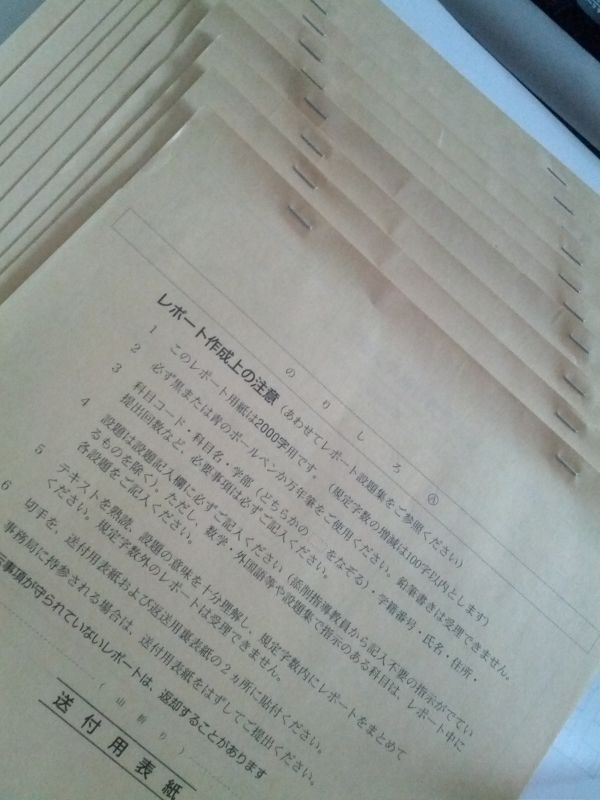 のりしろ Ⓐ
レポート作成上の注意（あわせてレポート設題集をご参照ください）
1 このレポート用紙は2000字用です。（規定字数の増減は100字以内とします）
2 必ず黒または青のボールペンか万年筆をご使用ください。鉛筆書きは受理できません。
3 科目コード・科目名・学部（どちらかの をなぞる）・学籍番号・氏名・住所・
提出回数など、必要事項は必ずご記入ください。
4 設題は設題記入欄に必ずご記入ください（添削指導教員から記入不要の指示がでてい
るものを除く）。ただし、数学・外国語等や設題集で指示のある科目は、レポート中に
各設題をご記入ください。
5 テキストを熟読、設題の意味を十分理解し、規定字数内にレポートをまとめて
ください。規定字数外のレポートは受理できません。
6 切手を、送付用表紙および返送用裏表紙の2ヵ所に貼付ください。
事務局に持参される場合は、送付用表紙をはずしてご提出ください。
事項が守られていないレポートは、返却することがあります
（山折り）
送付用表紙